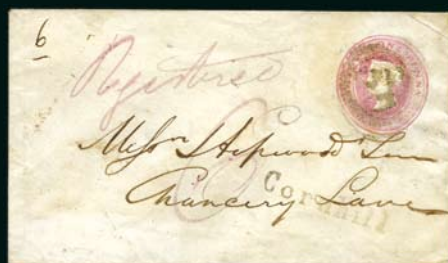 6
Registered
Messrs Hopwood & Son
Chancery Lane
Cornhill